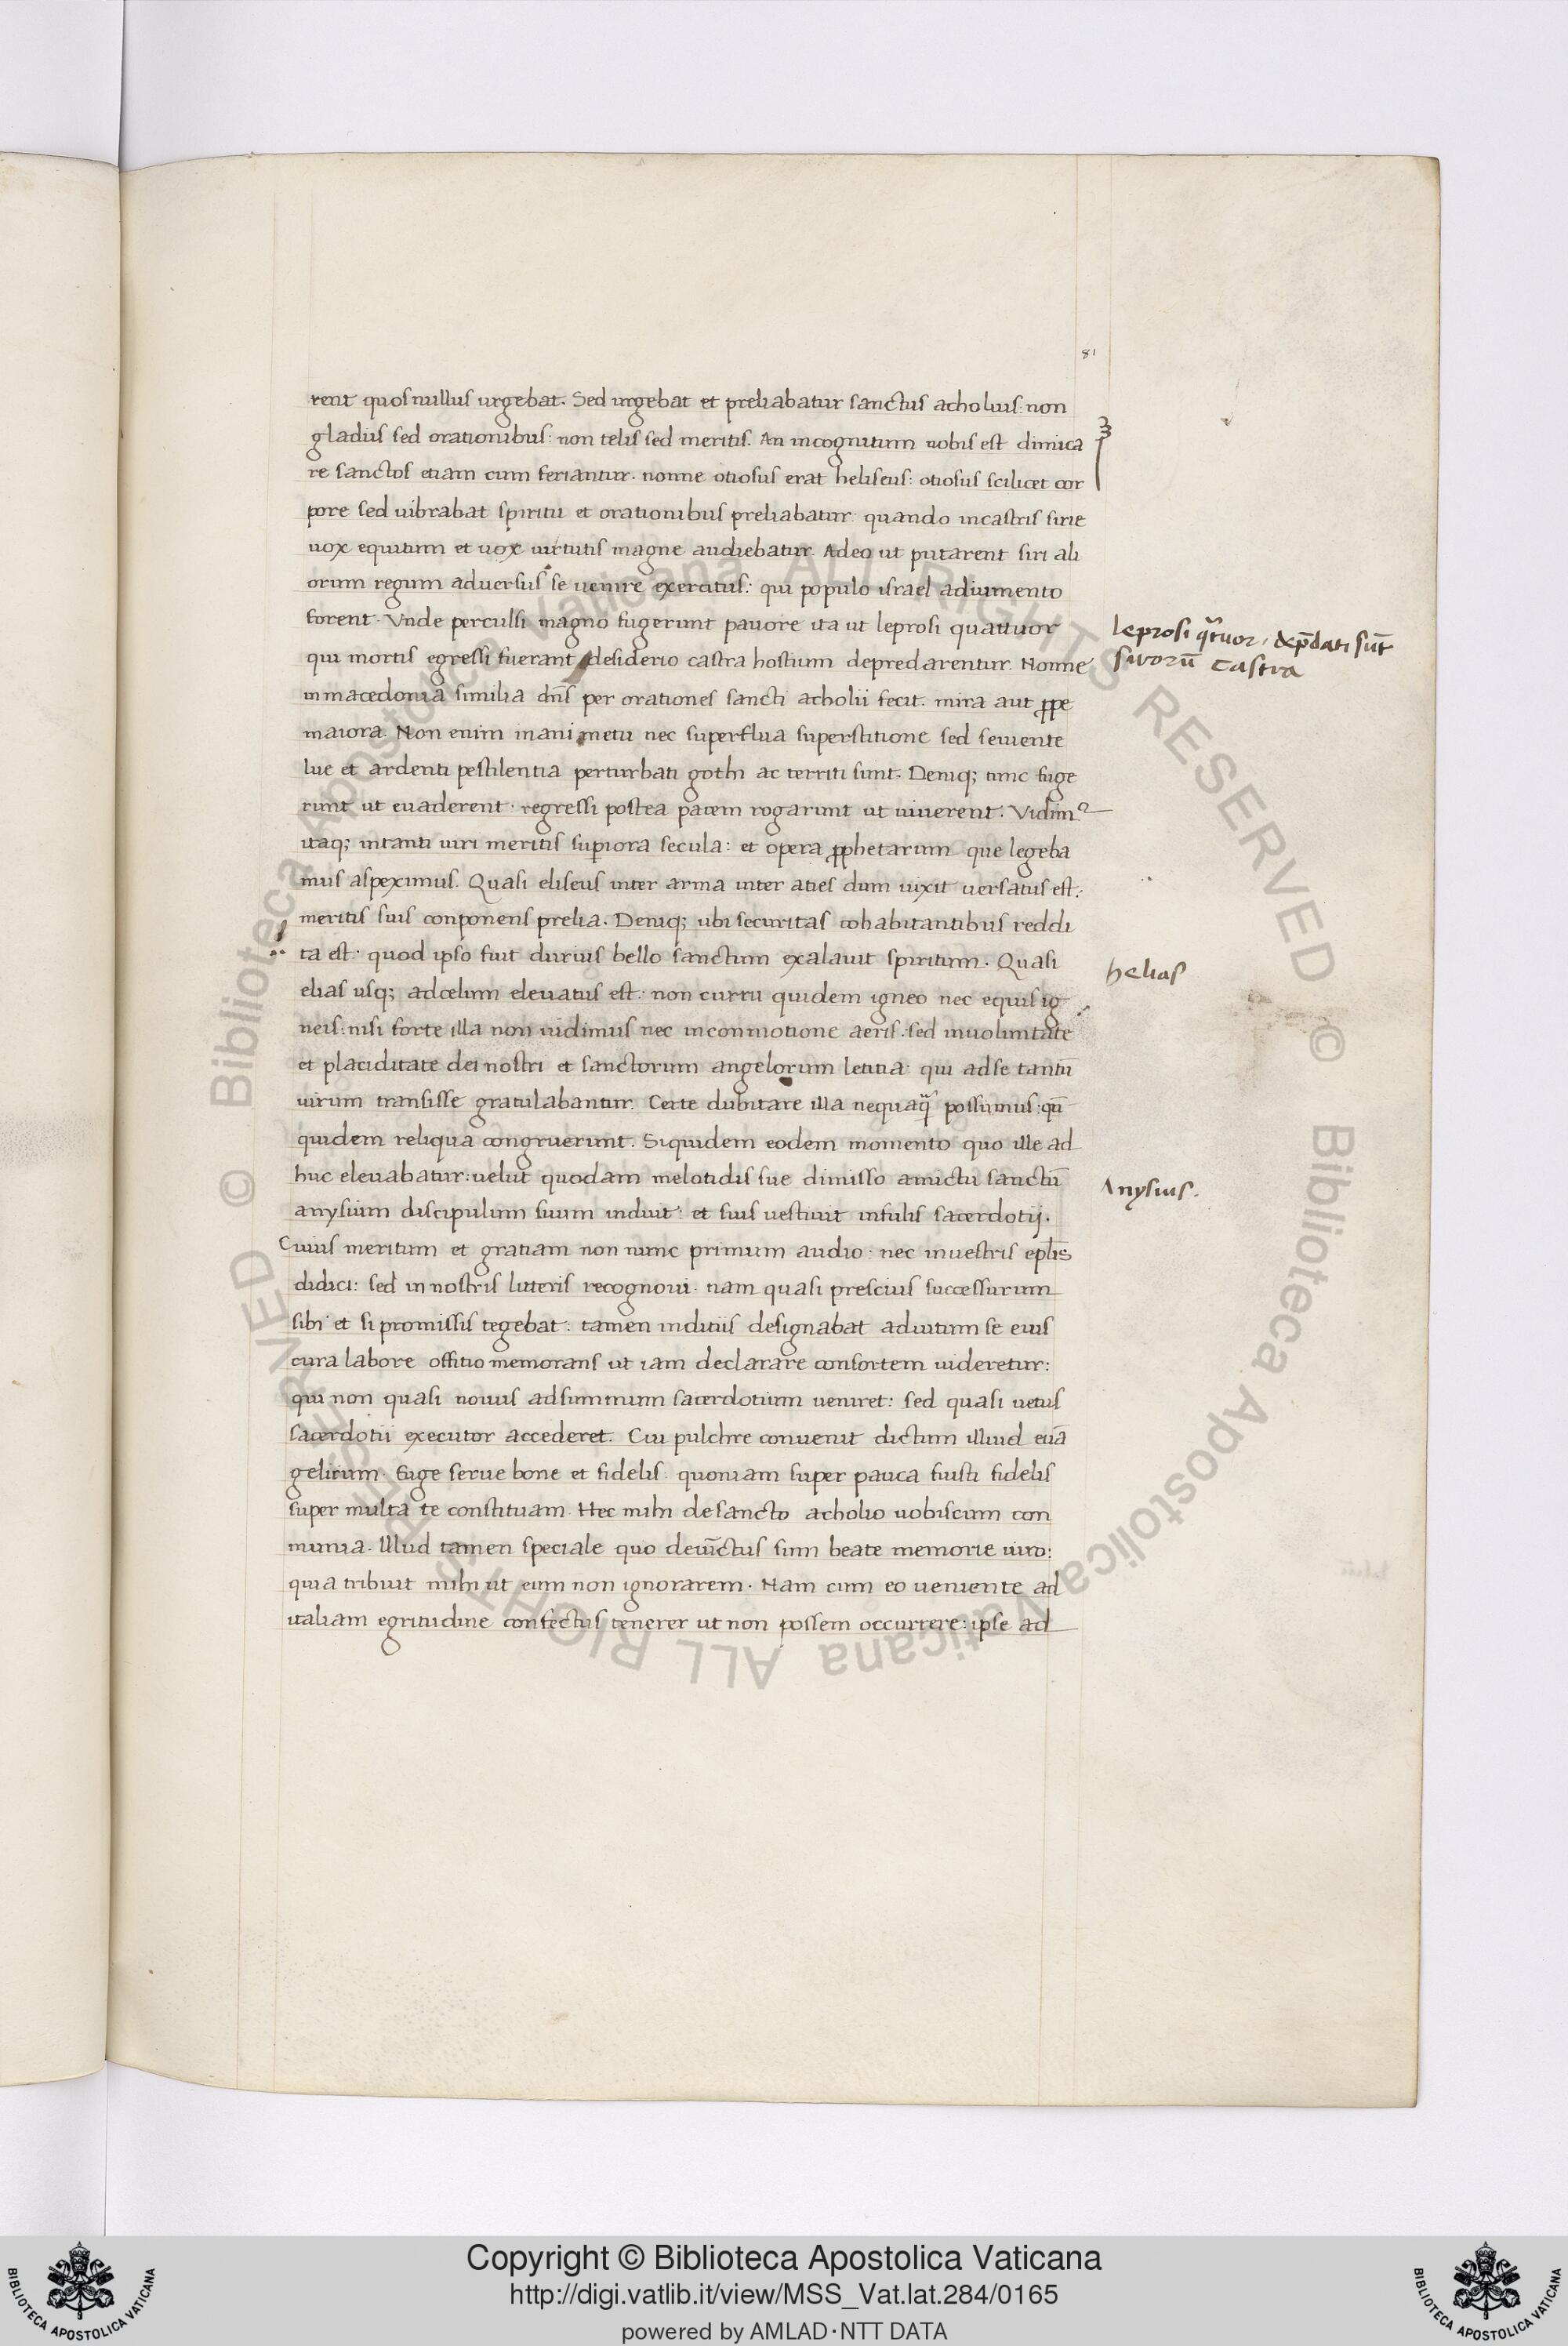 81
rent quos nullus urgebat. Sed urgebat et preliabatur sanctus acholius: non
gladiis sed orationibus: non telis sed meritis. An incognitum nobis est dimica
re sanctos etiam cum feriantur. nonne otiosus erat heliseus: otiosus scilicet cor
pore sed uibrabat spiritu et orationibus preliabatur: quando in castris sirie
uox equitum et uox uirtutis magne audiebatur. Adeo ut putarent siri ali
orum regum aduersus se uenire exercitus: qui populo israel adiumento
forent. Vnde perculsi magno fugerunt pauore ita ut leprosi quattuor
leprosi qtuor. dep̄dati sūt
qui mortis egressi fuerant desiderio castra hostium depredarentur. Nonne
sirorū castra
in macedonia similia dn̄s per orationes sancti acholii fecit. mira aut ꝓpe
maiora. Non enim inani metu nec superflua superstitione sed seuiente
lue et ardenti pestilentia perturbati gothi ac territi sunt. Deniq; tunc fuge
runt ut euaderent: regressi postea pacem rogarunt ut uiuerent. Vidim᷒
itaq; in tanti uiri meritis supiora secula: et opera ꝓphetarum que legeba
mus aspeximus. Quasi eliseus inter arma inter aties dum uixit uersatus est:
meritis suis conponens prelia. Deniq; ubi securitas cohabitantibus reddi
ta est: quod ipso fuit durius bello sanctum exalauit spiritum. Quasi
helias
elias usq; ad celum eleuatus est: non curru quidem igneo nec equis ig
neis: nisi forte illa non uidimus nec in conmotione aeris: sed in uoluntate
et placiditate dei nostri et sanctorum angelorum letitia: qui ad se tantū
uirum transisse gratulabantur. Certe dubitare illa nequaq̃ possumus: qn̄
quidem reliqua congruerunt. Siquidem eodem momento quo ille ad
huc eleuabatur: uelut quodam melotidis sue dimisso amictu sanctū
Anysius.
anysium discipulum suum induit: et suis uestiuit infulis sacerdotij.
Cuius meritum et gratiam non nunc primum audio: nec in uestris epl̄is
didici: sed in nostris litteris recognoui. nam quasi prescius successurum
sibi et si promissis tegebat: tamen inditiis designabat adiutum se eius
cura labore offitio memorans ut iam declarare consortem uideretur:
qui non quasi nouus ad summum sacerdotium ueniret: sed quasi uetus
sacerdotii executor accederet. Cui pulchre conuenit dictum illiud euā
gelicum. Euge serue bone et fidelis: quoniam super pauca fuisti fidelis
super multa te constituam. Hec mihi de sancto acholio uobiscum con
munia. Illud tamen speciale quo deuīctus sum beate memorie uiro:
quia tribuit mihi ut eum non ignorarem. Nam cum eo ueniente ad
italiam egritudine confectus tenerer ut non possem occurrere: ipse ad
Copyright © Biblioteca Apostolica Vaticana
http://digi.vatlib.it/view/MSS_Vat.lat.284/0165
powered by AMLAD·NTT DATA
BIBLIOTECA APOSTOLICA VATICANA
BIBLIOTECA APOSTOLICA VATICANA
© Biblioteca Apostolica Vaticana ALL RIGHTS RESERVED © Biblioteca Apostolica Vaticana ALL RIGHTS RESERVED